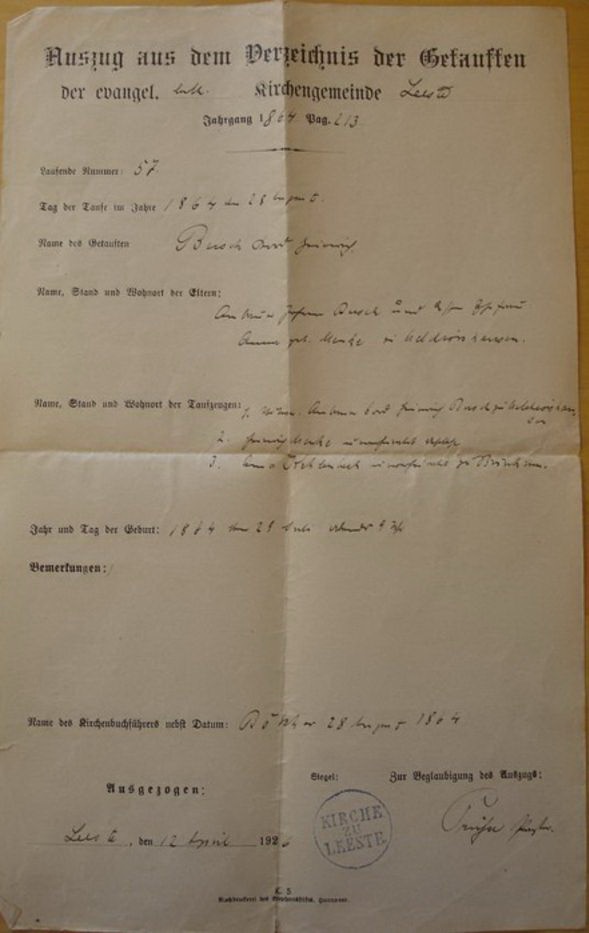 Auszug aus dem Verzeichnis der Getauften
der evangel. luth. Kirchengemeinde Leeste
Jahrgang 1864 Pag. 213
Laufende Nummer: 57.
Tag der Taufe im Jahre 1864 den 28 August.
Name des Getauften Busch Cord Heinrich.
Name, Stand und Wohnort der Eltern:
Anbauer Johann Busch und
Anna geb. Menke zu
Name, Stand und Wohnort der Taufzeugen: 1. Anbauer Cord Heinrich Busch zu
2. Heinrich Menke
3. Anna zu Brinkum.
Jahr und Tag der Geburt: 1864 den 29 Juli abends 9 Uhr
Bemerkungen:
Name des Kirchenbuchführers nebst Datum: 28 August 1864
Ausgezogen:
Siegel:
Zur Beglaubigung des Auszugs:
KIRCHE
ZU
LEESTE
Pastor.
Leeste, den 12 April 1926
K. 5